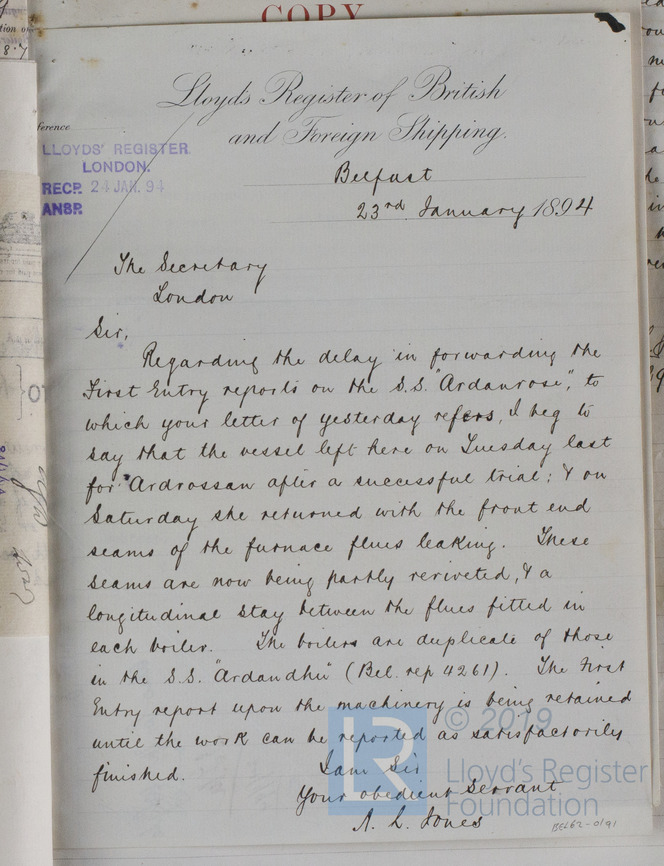 COPY
Lloyd's Register of British
and Foreign Shipping.
LLOYDS' REGISTER
LONDON.
RECD. 24 JAN. 94
ANSD.
Belfast
23rd January 1894
The Secretary
London
Sir,
Regarding the delay in forwarding the
First Entry reports on the S.S. "Ardanrose", to
which your letter of yesterday refers, I beg to
say that the vessel left here on Tuesday last
for Ardrossan after a successful trial; & on
Saturday she returned with the front end
seams of the furnace flues leaking. These
seams are now being partly reriveted, & a
longitudinal stay between the flues fitted in
each boiler. The boilers are duplicate of those
in the S.S. "Ardandhu" (Bel. rep 4261). The First
Entry report upon the machinery is being retained
until the work can be reported as satisfactorily
finished.
I am Sir
Your obedient Servant
A. L. Jones
BEL62-0191
LR © 2019
Lloyd's Register
Foundation